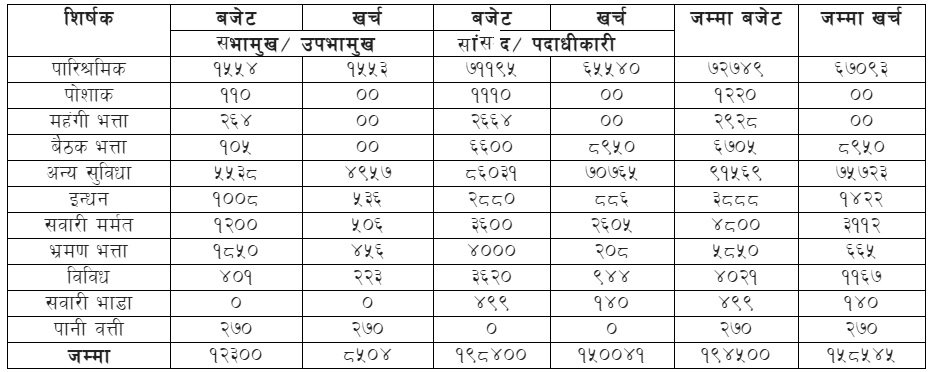 शिर्षक बजेट खर्च बजेट खर्च जम्मा बजेट जम्मा खर्च
सभामुख/ उपभामुख सांस द/ पदाधीकारी
पारिश्रमिक १५५४ १५५३ ७११९५ ६५५४० ७२७४९ ६७०९३
पोशाक ११० ०० १११० ०० १२२० ००
महंगी भत्ता २६४ ०० २६६४ ०० २९२८ ००
बैठक भत्ता १०५ ०० ६६०० ८९५० ६७०५ ८९५०
अन्य सुविधा ५५३८ ४९५७ ८६०३१ ७०७६५ ९१५६९ ७५७२३
इन्धन १००८ ५३६ २८८० ८८६ ३८८८ १४२२
सवारी मर्मत १२०० ५०६ ३६०० २६०५ ४८०० ३११२
भ्रमण भत्ता १८५० ४५६ ४००० २०८ ५८५० ६६५
विविध ४०१ २२३ ३६२० ९४४ ४०२१ ११६७
सवारी भाडा ० ० ४९९ १४० ४९९ १४०
पानी वत्ती २७० २७० ० ० २७० २७०
जम्मा १२३०० ८५०४ १९८४०० १५००४१ १९४५०० १५८५४५